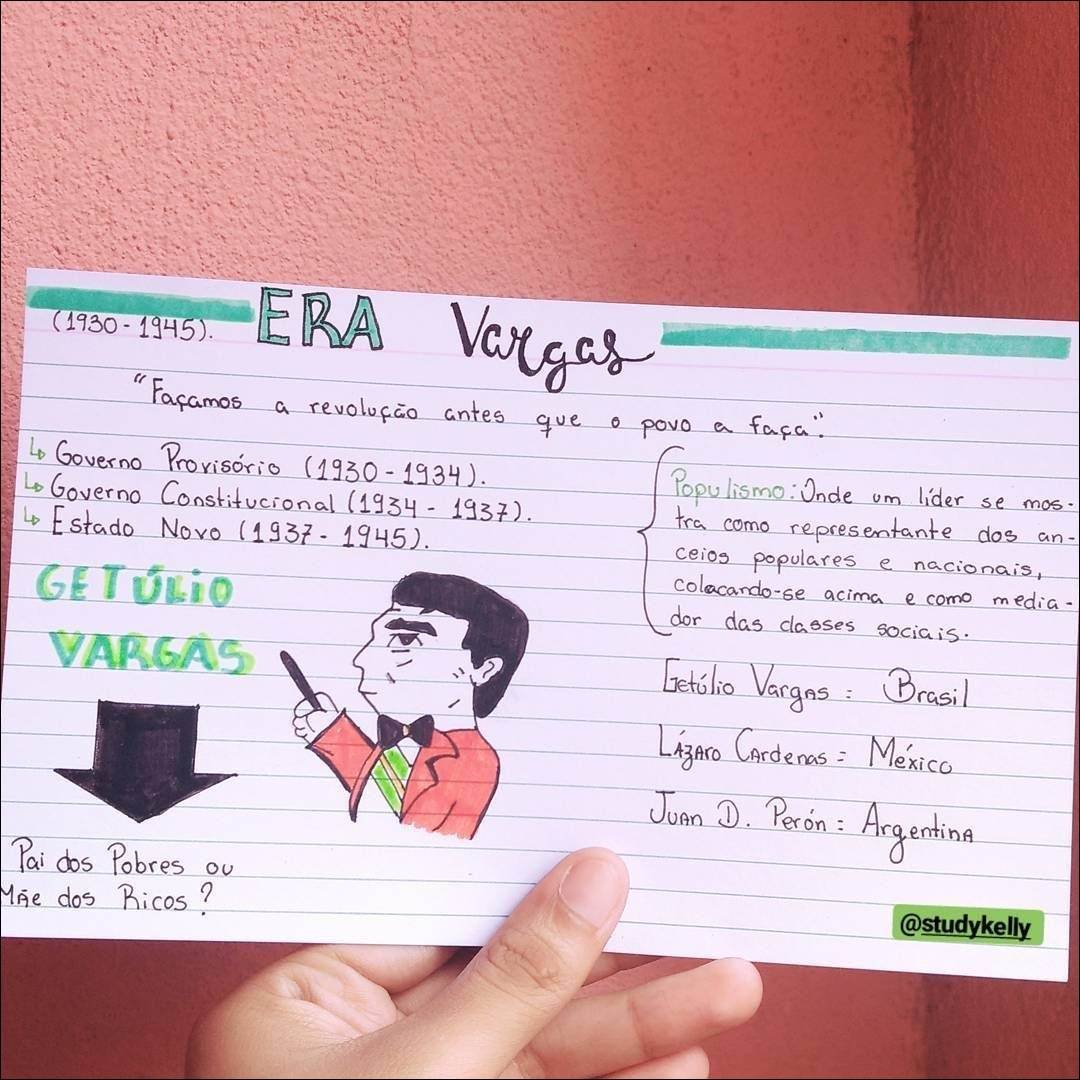 ERA Vargas
(1930 - 1945).
"Façamos a revolução antes que o povo a faça".
↳ Governo Provisório (1930 - 1934).
↳ Governo Constitucional (1934 - 1937).
↳ Estado Novo (1937 - 1945).
GETÚLIO
VARGAS
Pai dos Pobres ou
Mãe dos Ricos?
Populismo: Onde um líder se mos-
tra como representante dos an-
ceios populares e nacionais,
colacando-se acima e como media-
dor das classes sociais.
Getúlio Vargas = Brasil
Lázaro Cardenas = México
Juan D. Perón = Argentina
@studykelly